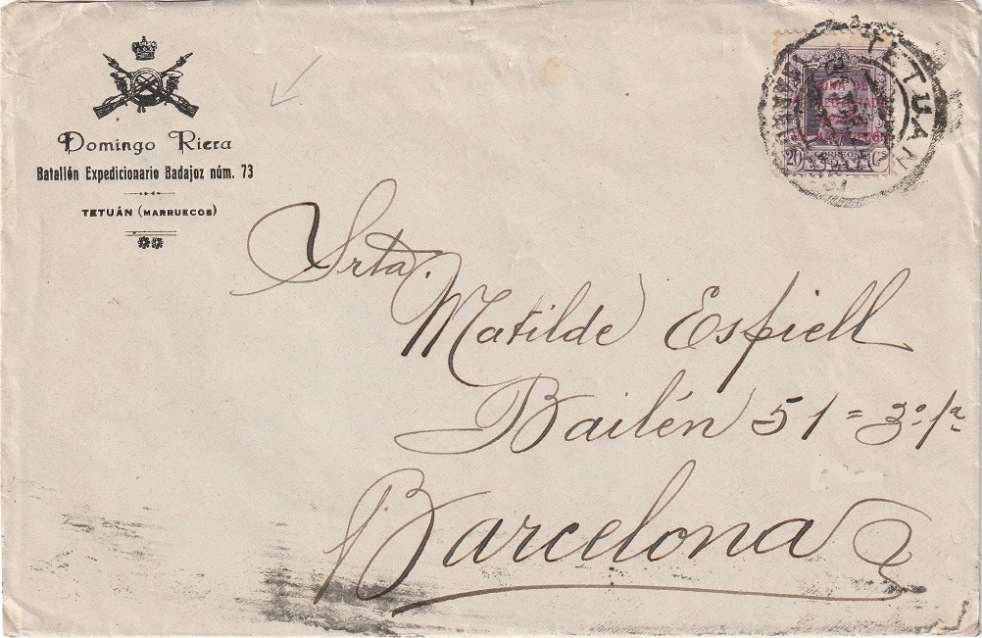 Domingo Riera
Batallón Expedicionario Badajoz núm. 73
TETUÁN (MARRUECOS)
TETUAN
ZONA DE
PROTECTORADO
20 CORREOS C
Srta.
Matilde Espiell
Bailén 51 = 3º 1ª
Barcelona